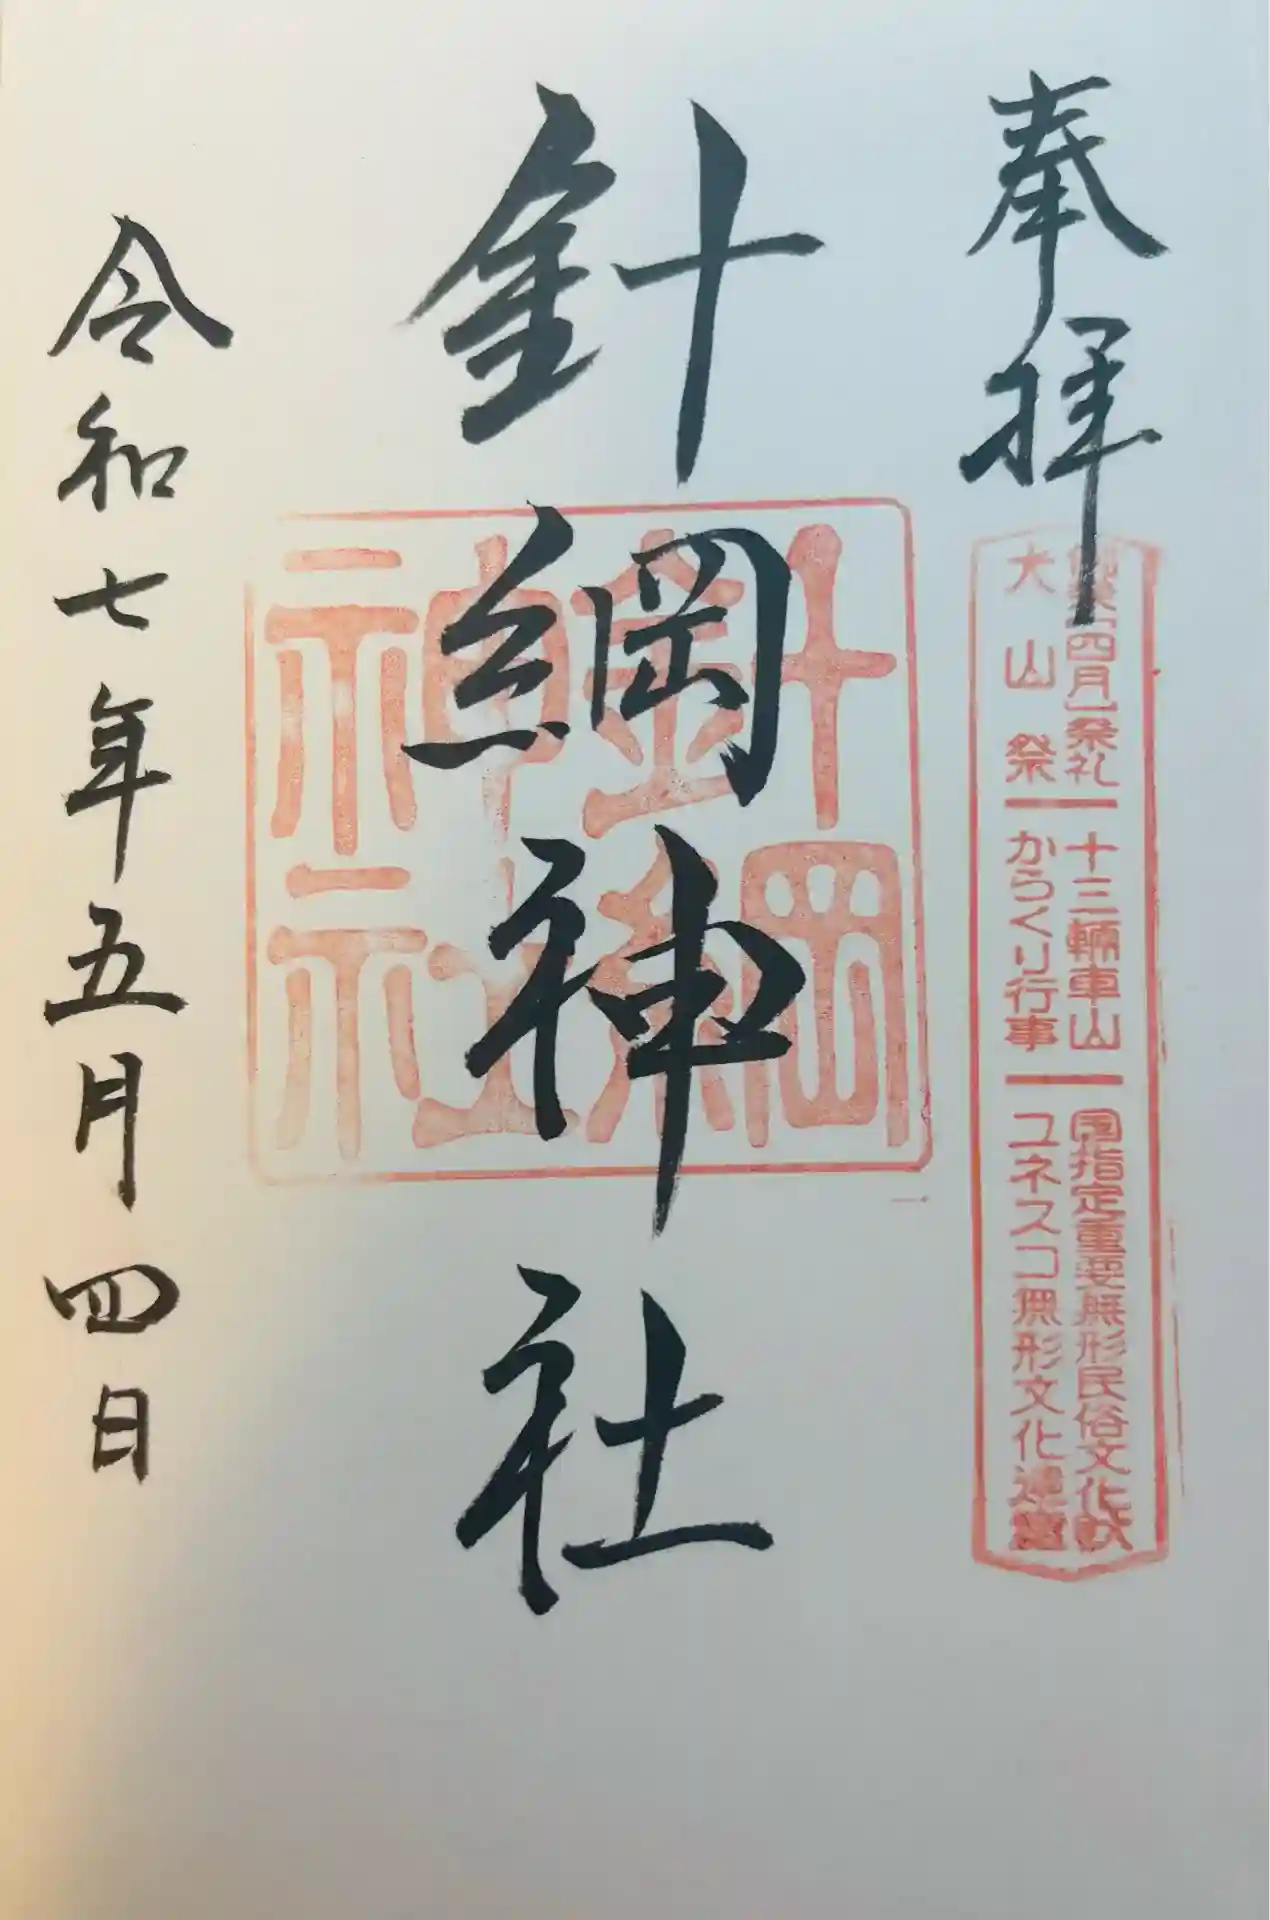 奉拝
[四月]祭礼 十三輛車山 国指定重要無形民俗文化財
大山祭 からくり行事 ユネスコ無形文化遺産
針綱神社
針綱神社
令和七年五月四日